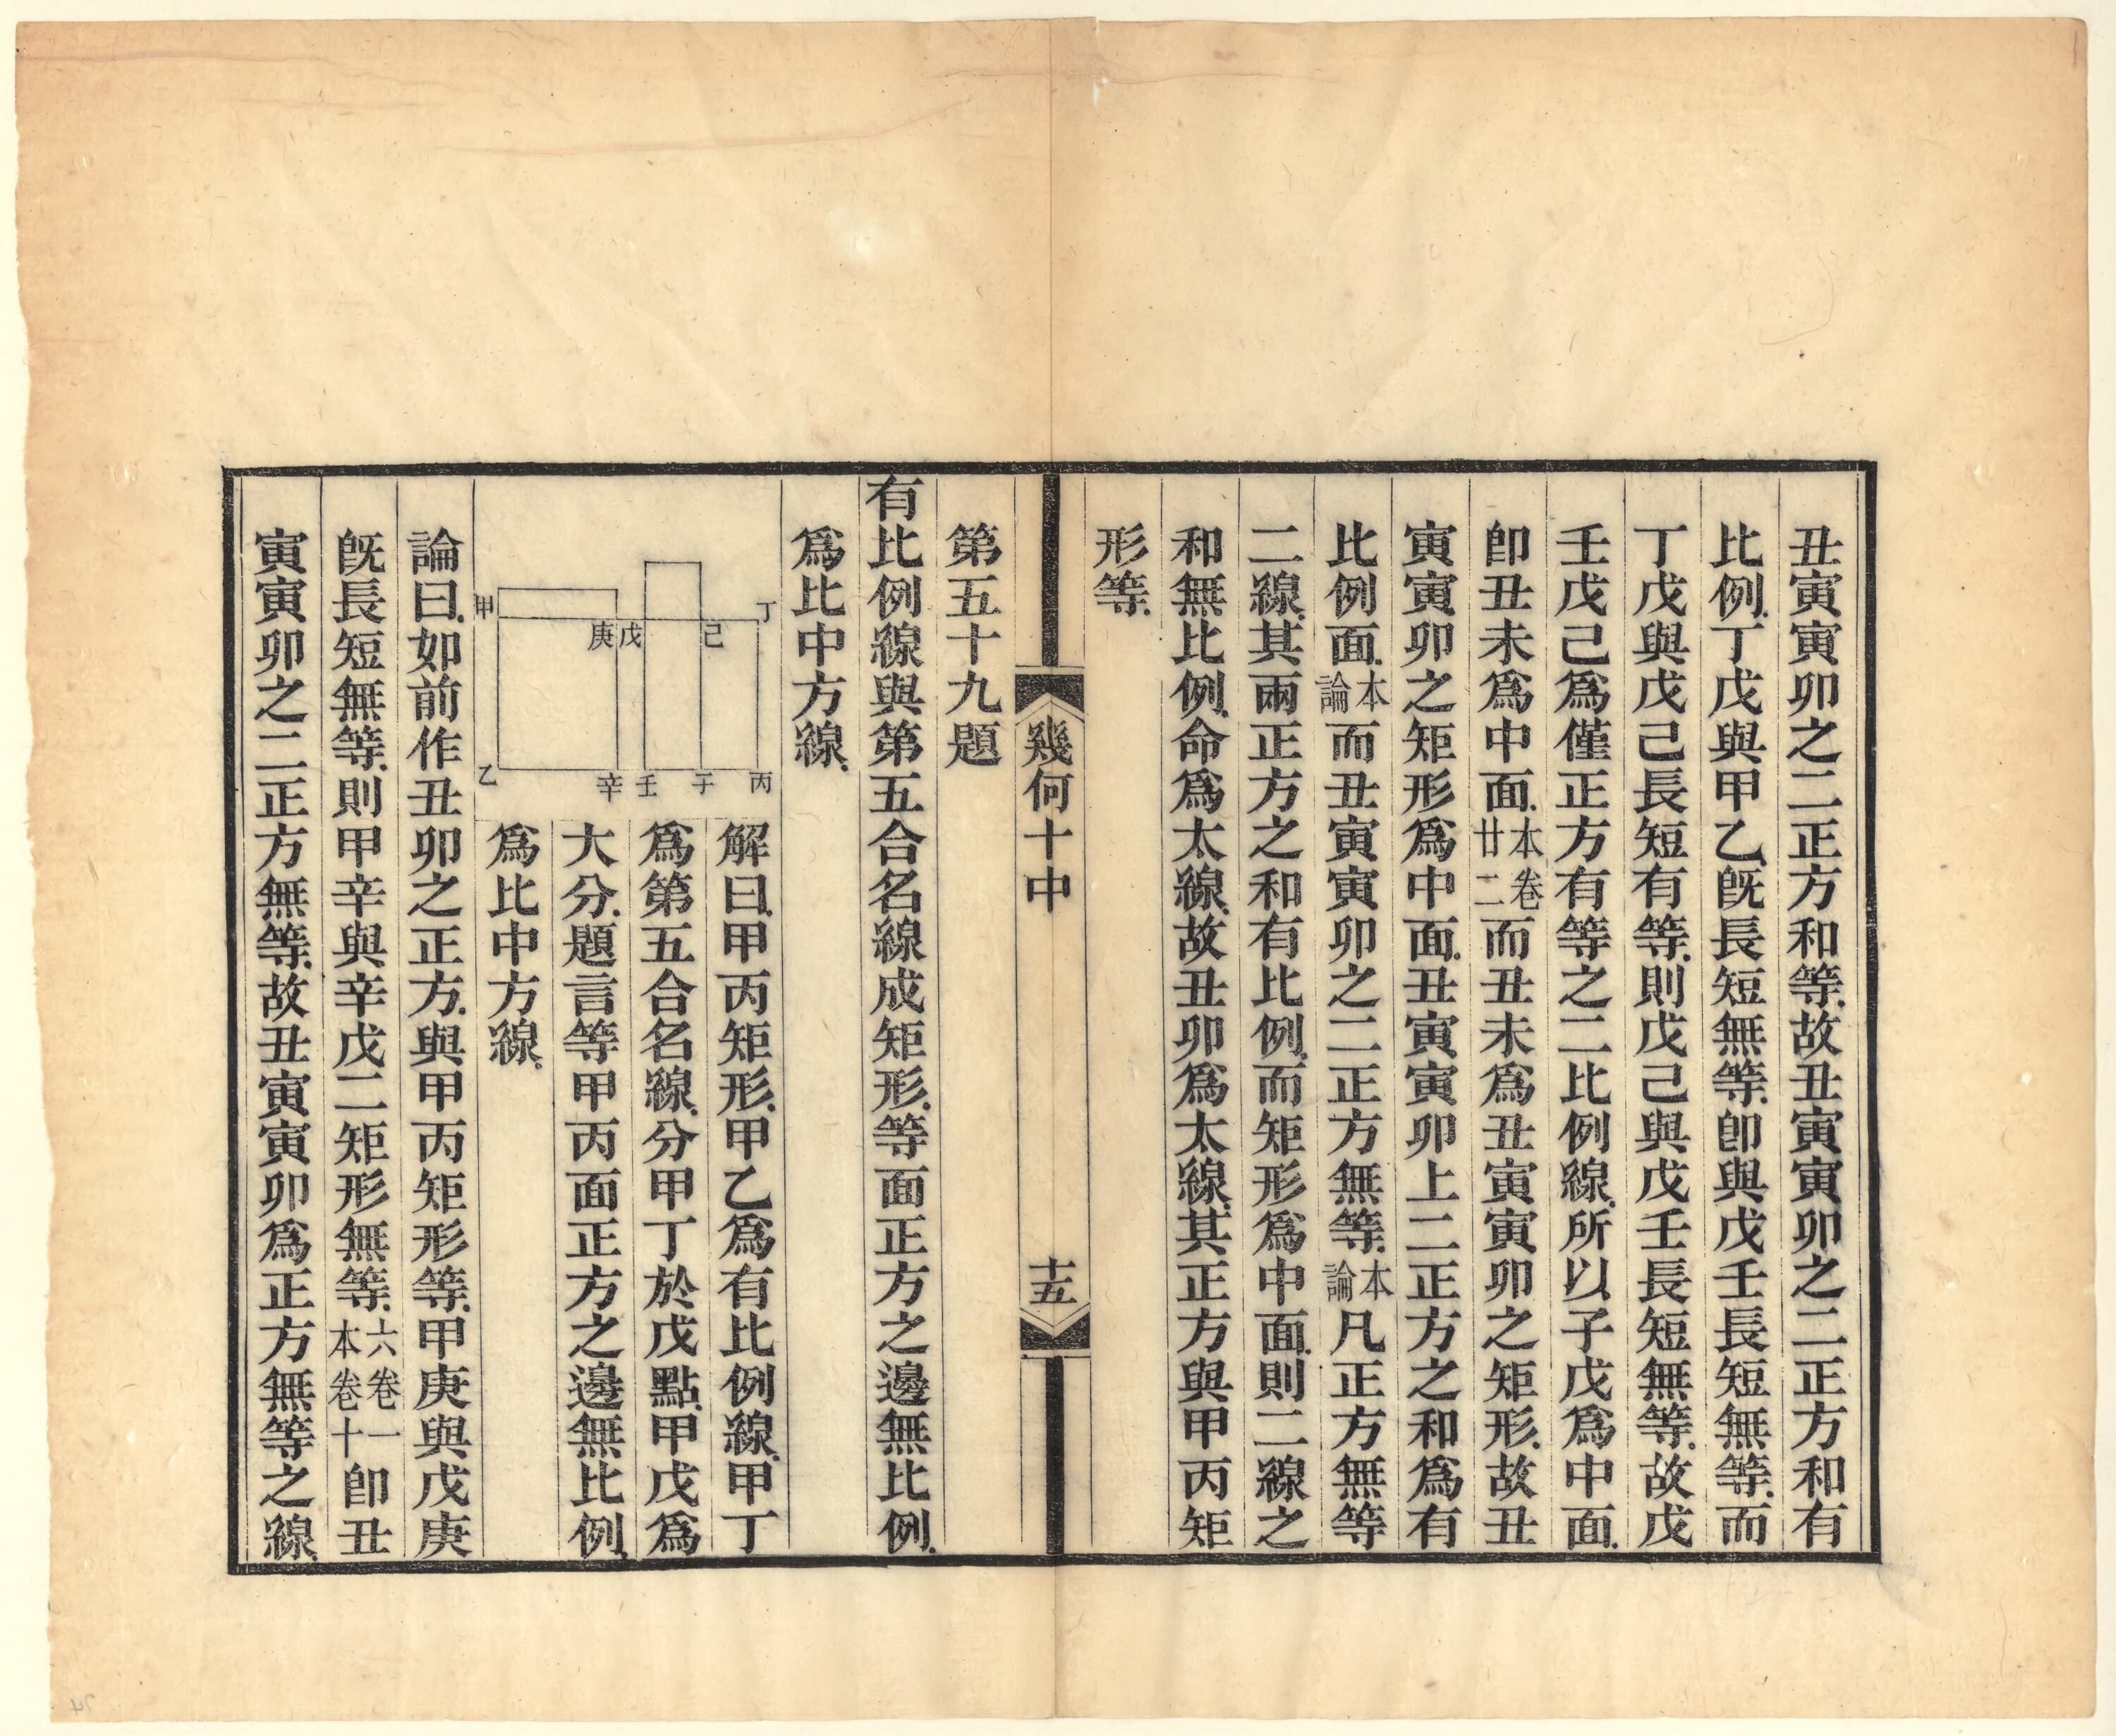 丑寅寅卯之二正方和等.故丑寅寅卯之二正方和有
比例.丁戊與甲乙旣長短無等.卽與戊壬長短無等.而
丁戊與戊己長短有等.則戊己與戊壬長短無等.故戊
壬戊己爲僅正方有等之二比例線.所以子戊爲中面.
卽丑未爲中面.本卷廿二而丑未爲丑寅寅卯之矩形.故丑
寅寅卯之矩形爲中面.丑寅寅卯上二正方之和爲有
比例面.本論而丑寅寅卯之二正方無等.本論凡正方無等
二線.其兩正方之和有比例.而矩形爲中面.則二線之
和無比例.命爲太線.故丑卯爲太線.其正方與甲丙矩
形等.
幾何十中
十五
第五十九題
有比例線與第五合名線成矩形.等面正方之邊無比例.
爲比中方線.
甲 庚 戊 己 丁
乙 辛 壬 子 丙
解曰.甲丙矩形.甲乙爲有比例線.甲丁
爲第五合名線.分甲丁於戊點.甲戊爲
大分.題言等甲丙面正方之邊無比例.
爲比中方線.
論曰.如前作丑卯之正方.與甲丙矩形等.甲庚與戊庚
旣長短無等.則甲辛與辛戊二矩形無等.六卷一本卷十卽丑
寅寅卯之二正方無等.故丑寅寅卯爲正方無等之線.